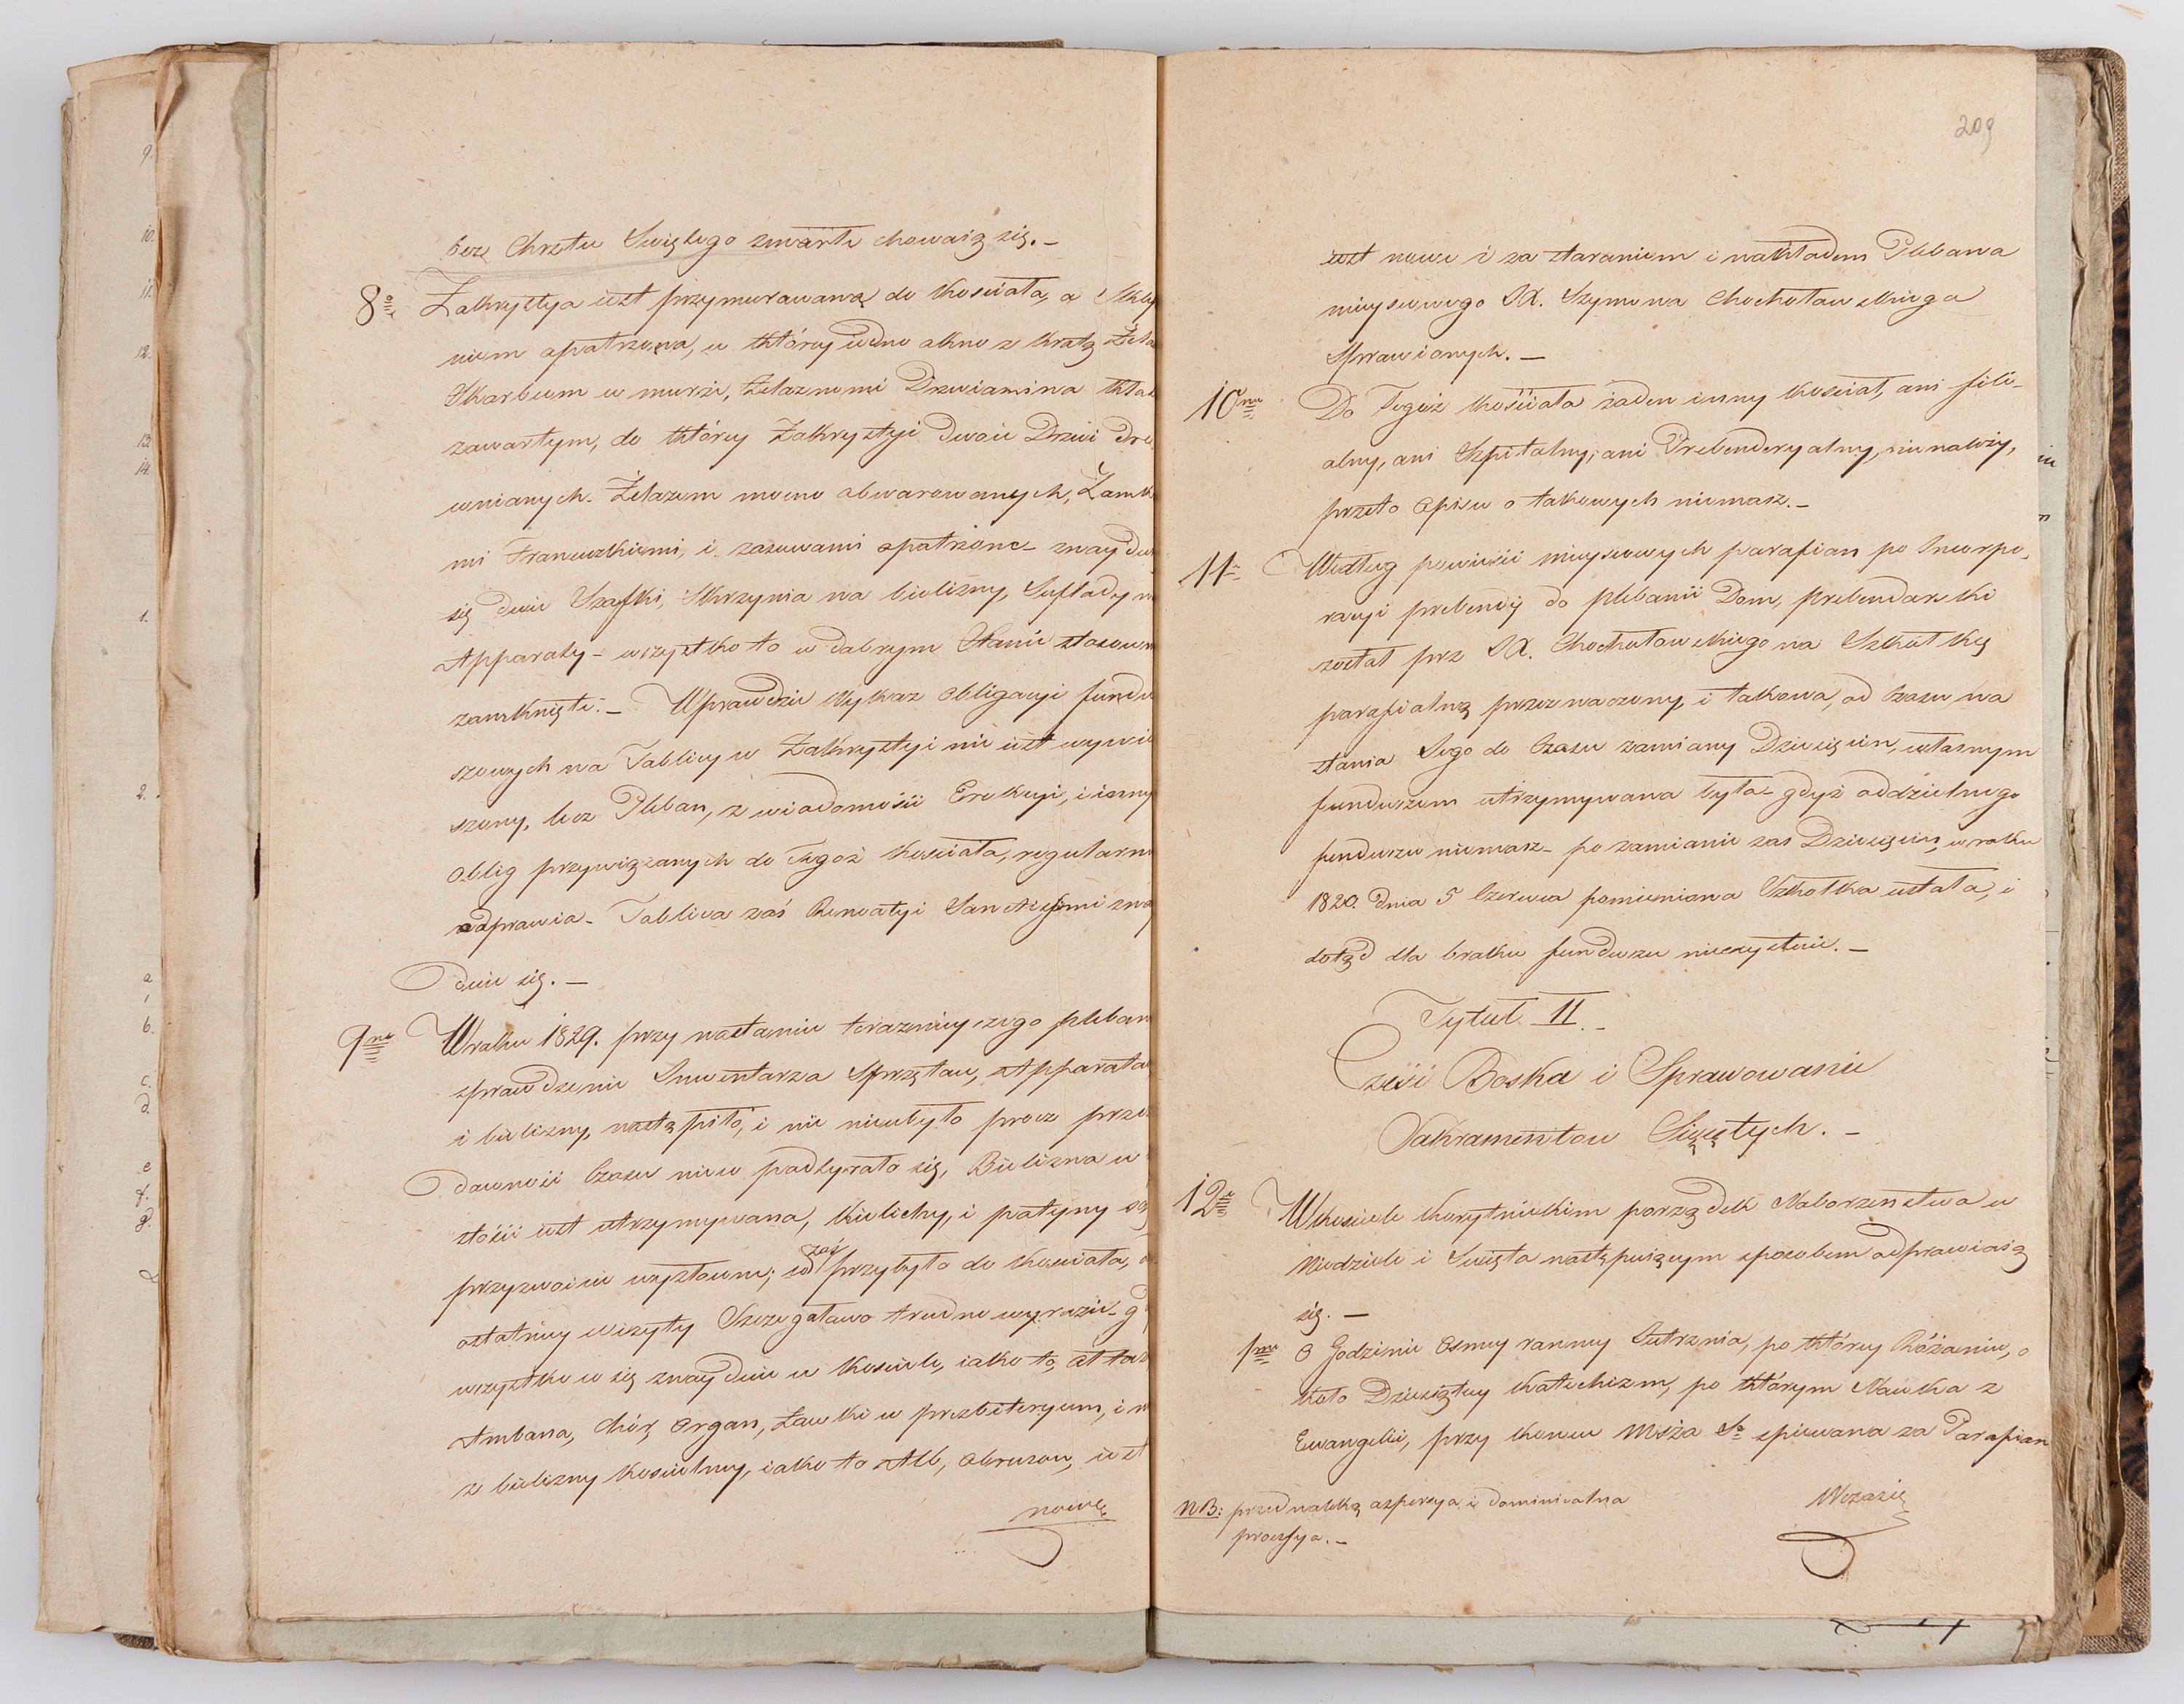 bez Chrztu Swiętego zmarłe chowaią się. –
8vo Zakrystya iest przymurowaną do Kościoła, a Skle
niem opatrzona, w któréy iedno okno z kratą Żela
Skarbcem w murze, Żelaznemi Drzwiamina
zawartym, do któréy Zakrystyi dwoie Drzwi dre
wnianych. Żelazem mocno obwarowanych, Zamk
mi Francuzkiemi, i zasuwami opatrzone – znayduie
się dwie Szafki, Skrzynia na bielizny, Suflady n
Apparaty – wszystko to w dobrym Stanie stosown
zamknięte. – Wprawdzie Wykaz obligacyi fundu
szowych na Tablicy w Zakrystyi nie iest wywie
szony, lecz Pleban, z wiadomości Erekcyi, i inny
oblig przywiązanych do Tegoż Kościoła, regularni
odprawia – Tablica zaś Renovatyi Sanctissimi zna
duie się. –
9no W roku 1829. przy nastaniu teraznieyszego pleban
sprawdzenie Inwentarza Sprzętow, Apparato
i bielizny, nastąpiło, i nic nieubyło procz prze
dawność Czasu nieco podtyrało się, Bielizna w
stości iest utrzymywana, Kielichy, i patyny są
przyzwoicie wyzłocone; co zaś przybyło do Kościoła, o
ostatniey wizyty Szczegołowo trudno wyrazić – g
wszystko co się znayduie w Kościele, iako to, Ołtarz
Ambona, Chór, Organ, Ławki w prezbiteryum, i n
z bielizny Kościelney, iako to Alb, obrusow, iest
nowe
209
iest nowe i za staraniem i nakładem Plebana
mieyscowego JX. Szymona Chochołowskiego
Sprawionych. –
10mo Do Tegoż Kościoła żaden inny Kościoł, ani fili-
alny, ani Szpitalny, ani Prebenderyalny, nienależy,
przeto Opisu o takowych niemasz. –
11o Według powieści mieyscowych parafian po Incorpo-
racyi prebendy do plebanii Dom, prebendarski
został prz JX. Chochołowskiego na Szkołkę
parafialną przeznaczony, i takowa, od Czasu na
stania Jego do Czasu zamiany Dziesięcin, własnym
funduszem utrzymywana była – gdyż oddzielnego
funduszu niemasz – po zamianie zas Dziesięcin, w roku
1820. dnia 5 Czerwca pomieniona Szkołka ustała, i
dotąd dla braku funduszu nieexystuie. –
Tytuł II. –
Cześć Boska i Sprawowanie
Sakramentow Swiętych. –
12mo W Kościele Korytnickim porządek Nabożeństwa w
Niedziele i Swięta następuiącym sposobem odprawiaią
się. –
1mo O Godzinie Osmey ranney Jutrznia, po któréy Różaniec, o
koło Dziesiątey Katechizm, po którym Nauka z
Ewangelii, przy koncu Msza Sta spiewana za Parafian
Wczasie
NB: przed nauką aspersya i dominicalna
processya. –